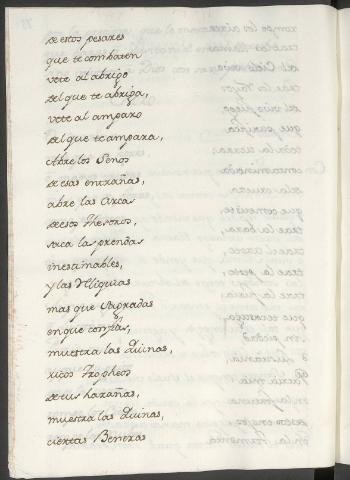 de estos pesares
que te combaten
vete al abrigo
del que te abriga,
vete al amparo
del que te ampara,
Abre los Senos
de esas entrañas,
abre las Arcas
de esos Thesoros,
saca las prendas
inestimables,
y las Reliquias
mas que Sagradas
en que confias,
muestra las Divinas,
ricos Tropheos
de tus hazañas,
muestra las Divinas,
ciertas Veneras